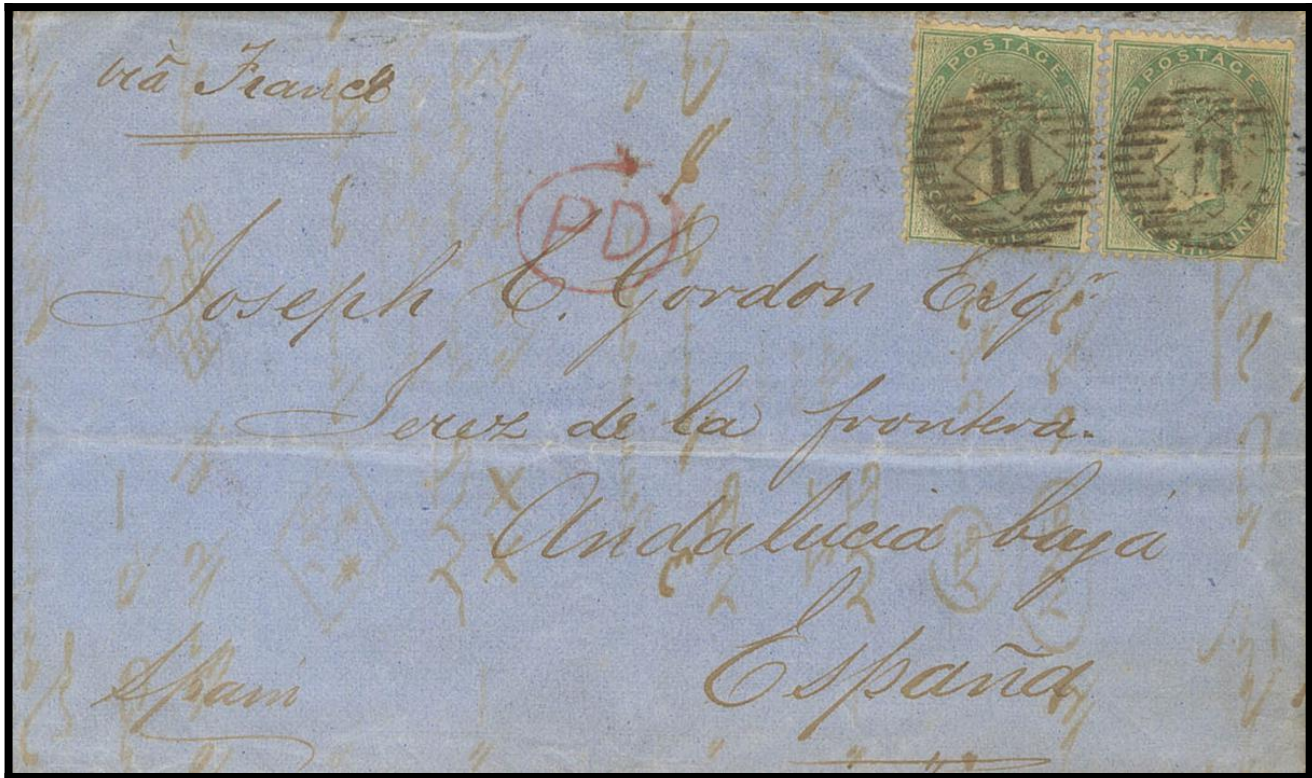 viā France
POSTAGE
ONE SHILLING
POSTAGE
SHILLING
11
11
PD
Joseph C. Gordon Esqr.
Jerez de la frontera.
Andalucia bajá
España
Spain